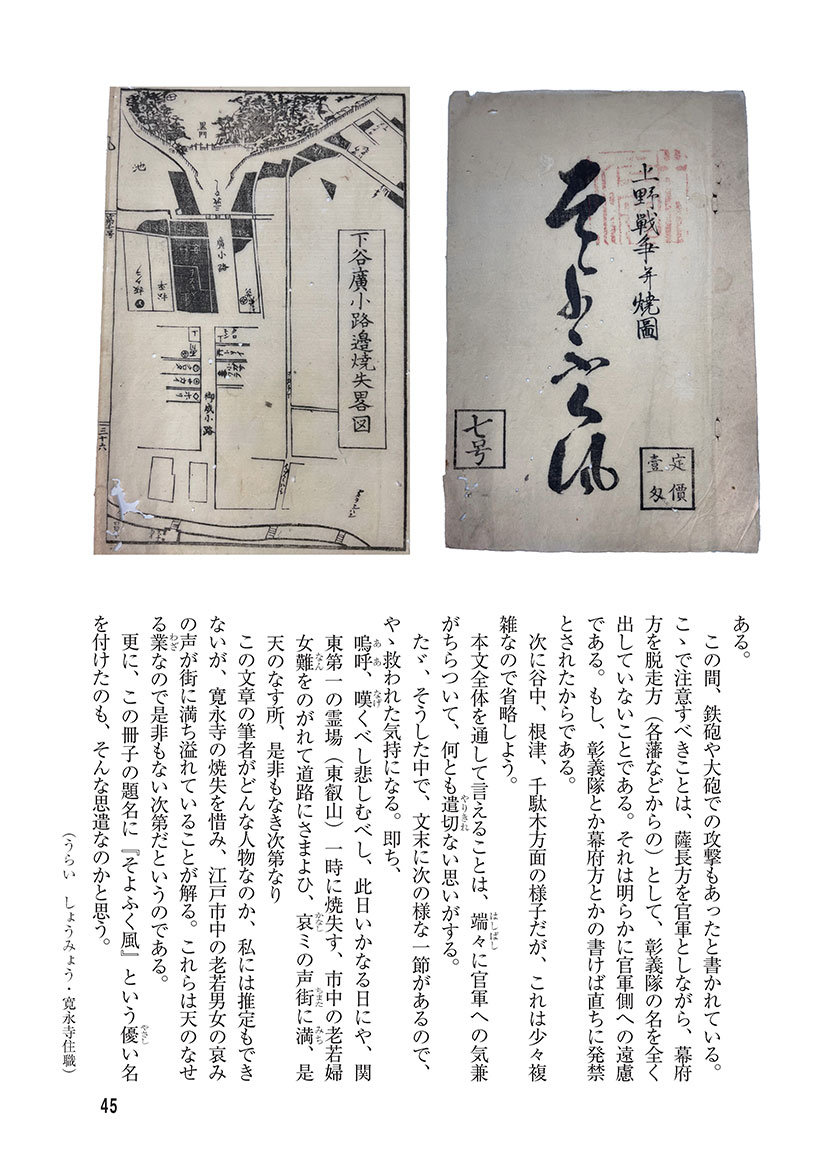 上野戦争并焼圖
そよふく風
七号
定價
壹匁
下谷廣小路邉焼失畧図
黒門
池
廣小路
御成小路
三十六
ある。
この間、鉄砲や大砲での攻撃もあったと書かれている。
こゝで注意すべきことは、薩長方を官軍としながら、幕府
方を脱走方（各藩などからの）として、彰義隊の名を全く
出していないことである。それは明らかに官軍側への遠慮
である。もし、彰義隊とか幕府方とかの書けば直ちに発禁
とされたからである。
次に谷中、根津、千駄木方面の様子だが、これは少々複
雑なので省略しよう。
本文全体を通して言えることは、端々はしばしに官軍への気兼
がちらついて、何とも遣切やりきれない思いがする。
たゞ、そうした中で、文末に次の様な一節があるので、
やゝ救われた気持になる。即ち、
嗚呼ああ、嘆なげくべし悲しむべし、此日いかなる日にや、関
東第一の霊場（東叡山）一時に焼失す、市中の老若婦
女難なんをのがれて道路にさまよひ、哀かなしミの声街ちまたに満みち、是
天のなす所、是非もなき次第なり
この文章の筆者がどんな人物なのか、私には推定もでき
ないが、寛永寺の焼失を惜み、江戸市中の老若男女の哀み
の声が街に満ち溢れていることが解る。これらは天のなせ
る業わざなので是非もない次第だというのである。
更に、この冊子の題名に『そよふく風』という優やさしい名
を付けたのも、そんな思遣なのかと思う。
（うらい　しょうみょう・寛永寺住職）
45